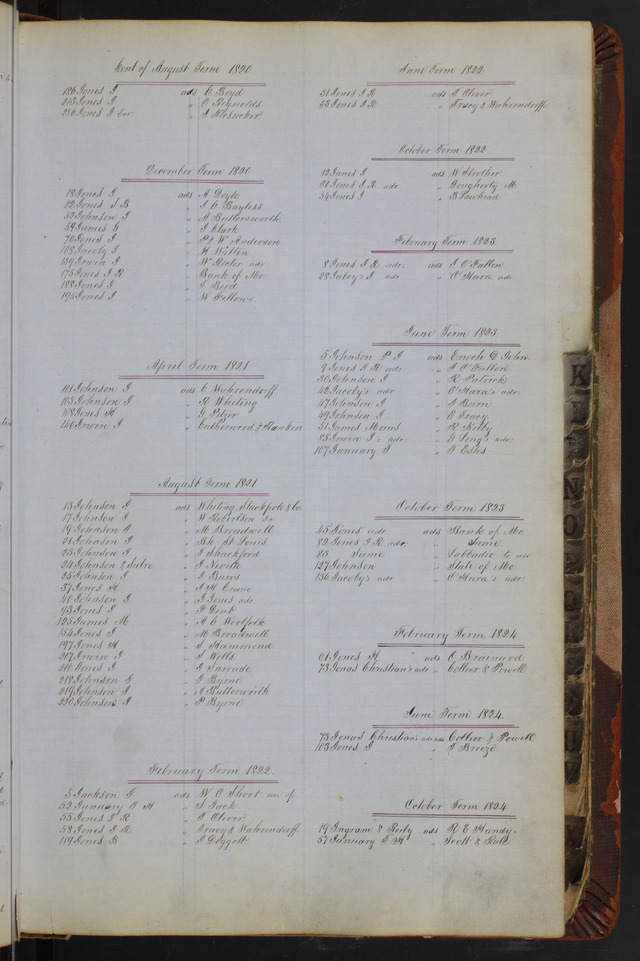 Cont of August Term 1820
186 Jones J ads C Boyd
213 Jones J " C Reynolds
236 Jones J Exr " J Klesucker
December Term 1820
18 Jones J ads A Doyle
22 Jones J B " J C Bayless
53 Johnson J " A Buttersworth
59 James C " J Clark
70 Jones J " P & W Anderson
108 Jacoby J " H Walton
139 Irwin J " W Rector adr
175 Jones J R " Bank of Mo
188 Jones J " J Bird
195 Jones J " W Fellows
April Term 1821
101 Johnson J ads C Wahrendorff
103 Johnson J " R Whiting
108 Jones H " G Pelzer
146 Irwin J " Catherwood & Rankin
August Term 1821
13 Johnson J ads Whiting, Stackpole & Co
17 Johnson J " W Robertson Jr
19 Johnson J " M Broadwell
21 Johnson J " Bk St Louis
23 Johnson J " J Shackford
24 Johnson & " J Neville
25 Johnson J " J Buros
37 Jones H " J H Crane
41 Johnson J " J Jones adr
93 Jones J " F Dent
125 James M " A C Woolfolk
154 Jones J " M Broadwell
197 Jones H " J Hammond
207 Irwin J " J Wells
211 Jones J " J Larrade
218 Johnson J " J Byrne
219 Johnson J " A Butterworth
230 Johnson J " P Byrne
February Term 1822
5 Jackson G ads W C Short use of
52 January D H " S Jack
55 Jones J R " J Oliver
58 Jones J R " Tracy & Wahrendorff
119 Jones B " J Doggett
June Term 1822
31 Jones J R ads J Oliver
33 Jones J R " Tracy & Wahrendorff
October Term 1822
12 Janes J ads W Strother
30 Jones J R adr " Dougherty M
34 Jones J " B Lawhead
February Term 1823
8 Jones J R adr ads J O'Fallon
28 Jaboy's J adr " O'Hara adr
June Term 1823
5 Johnson P J ads Enoch D John
9 Jones J R adr " J O'Fallon
30 Johnson J " R Patrick
42 Jacoby's adr " O'Hara's adr
47 Johnson J " J Burn
49 Johnson J " E Tracy
51 James Morris " R Kilby
88 Irwin J's adr " G Long's adr
107 January J " T Estes
October Term 1823
45 Jones' adr ads Bank of Mo
82 Jones J R adr " Same
83 Same " Labbadie to use
127 Johnson " State of Mo
136 Jacoby's adr " O'Hara's adr
February Term 1824
61 Jones H ads C Brainard
73 Jonas Christian's adr " Collier & Powell
June Term 1824
73 Jonas Christian's adr ads Collier & Powell
103 Jones J " J Breeze
October Term 1824
19 Ingram & Reily ads R E Handy
57 January D H " Scott & Rule
K
N
O